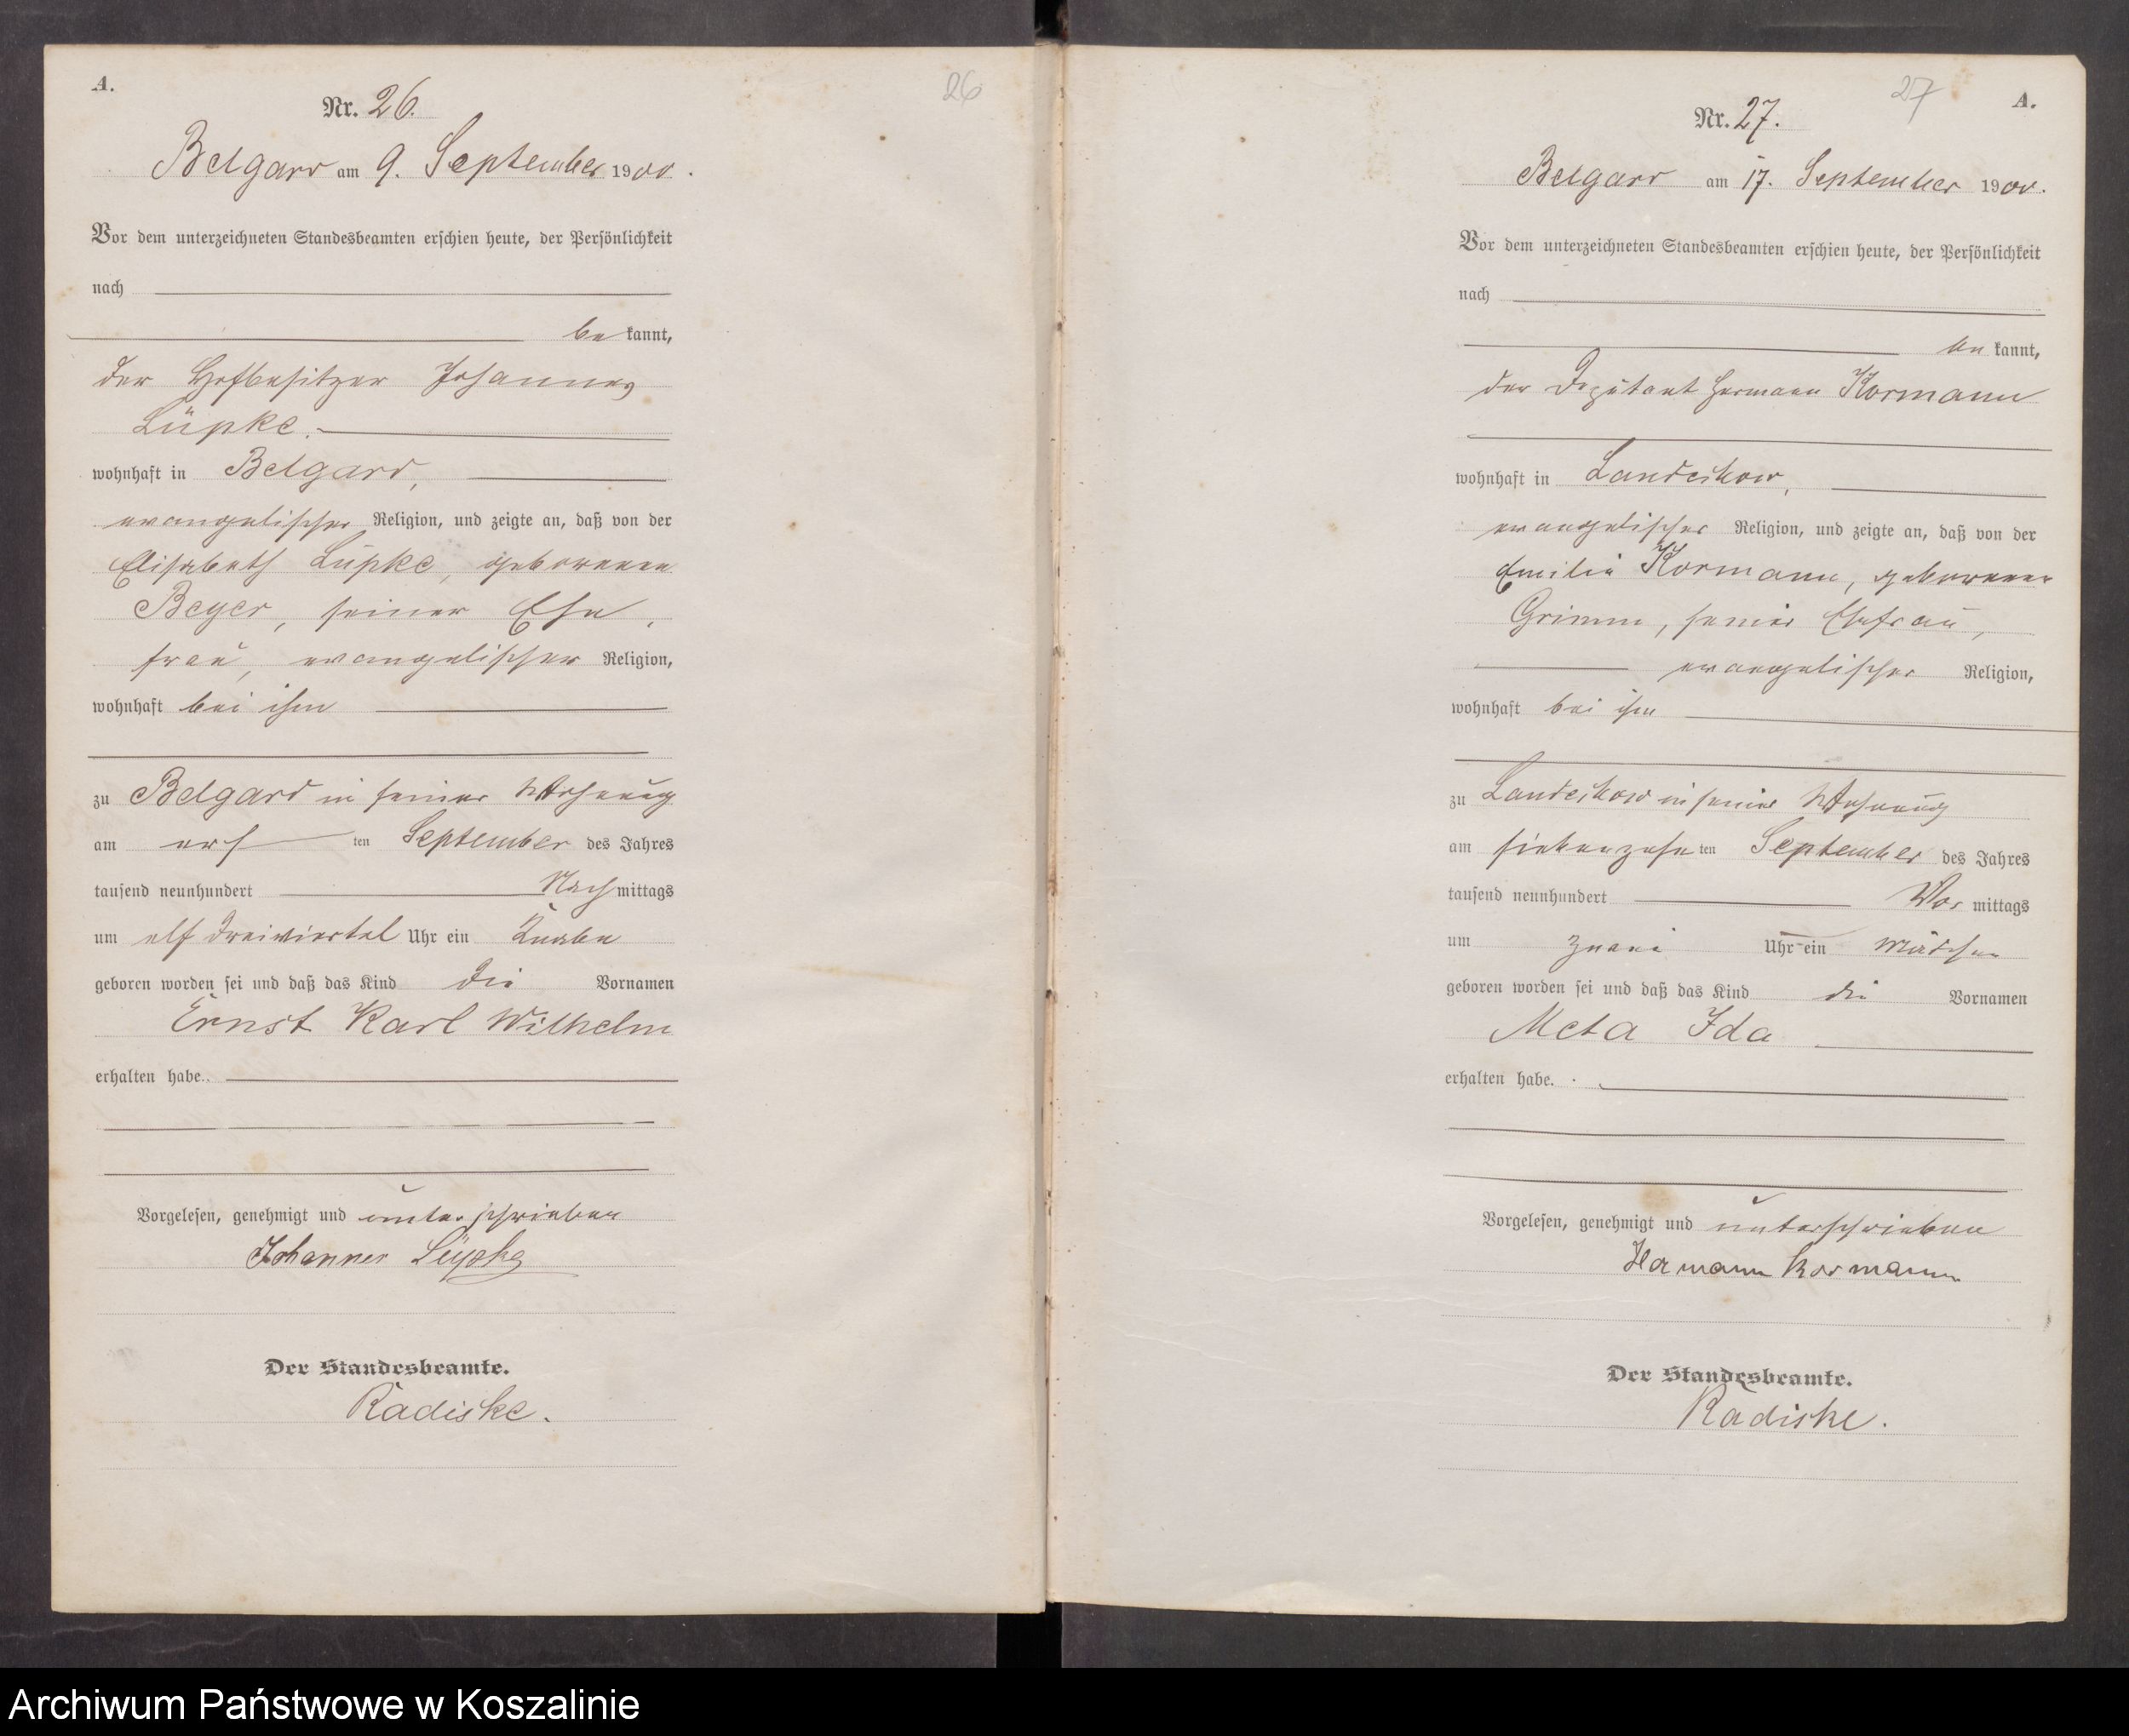 A.
26
Nr. 26.
Belgard am 9. September 1900.
Vor dem unterzeichneten Standesbeamten erschien heute, der Persönlichkeit
nach
be kannt,
der Hofbesitzer Johannes
Lüpke.
wohnhaft in Belgard,
evangelischer Religion, und zeigte an, daß von der
Elisabeth Lüpke, geborenen
Beyer, seiner Ehe,
frau, evangelischer Religion,
wohnhaft bei ihm
zu Belgard in seiner Wohnung
am ers ten September des Jahres
tausend neunhundert Nach mittags
um elf dreiviertel Uhr ein Knabe
geboren worden sei und daß das Kind die Vornamen
Ernst Karl Wilhelm
erhalten habe.
Vorgelesen, genehmigt und unterschrieben
Johannes Lüpke
Der Standesbeamte.
Radiske.
27
A.
Nr. 27.
Belgard am 17. September 1900.
Vor dem unterzeichneten Standesbeamten erschien heute, der Persönlichkeit
nach
be kannt,
der Deputant Hermann Kormann
wohnhaft in Landechow,
evangelischer Religion, und zeigte an, daß von der
Emilie Kormann, geborenen
Grimm, seiner Ehefrau,
evangelischer Religion,
wohnhaft bei ihm
zu Landechow in seiner Wohnung
am siebenzehn ten September des Jahres
tausend neunhundert Vor mittags
um zwei Uhr ein Mädchen
geboren worden sei und daß das Kind die Vornamen
Meta Ida
erhalten habe.
Vorgelesen, genehmigt und unterschrieben
Hermann Kormann
Der Standesbeamte.
Radiske.
Archiwum Państwowe w Koszalinie